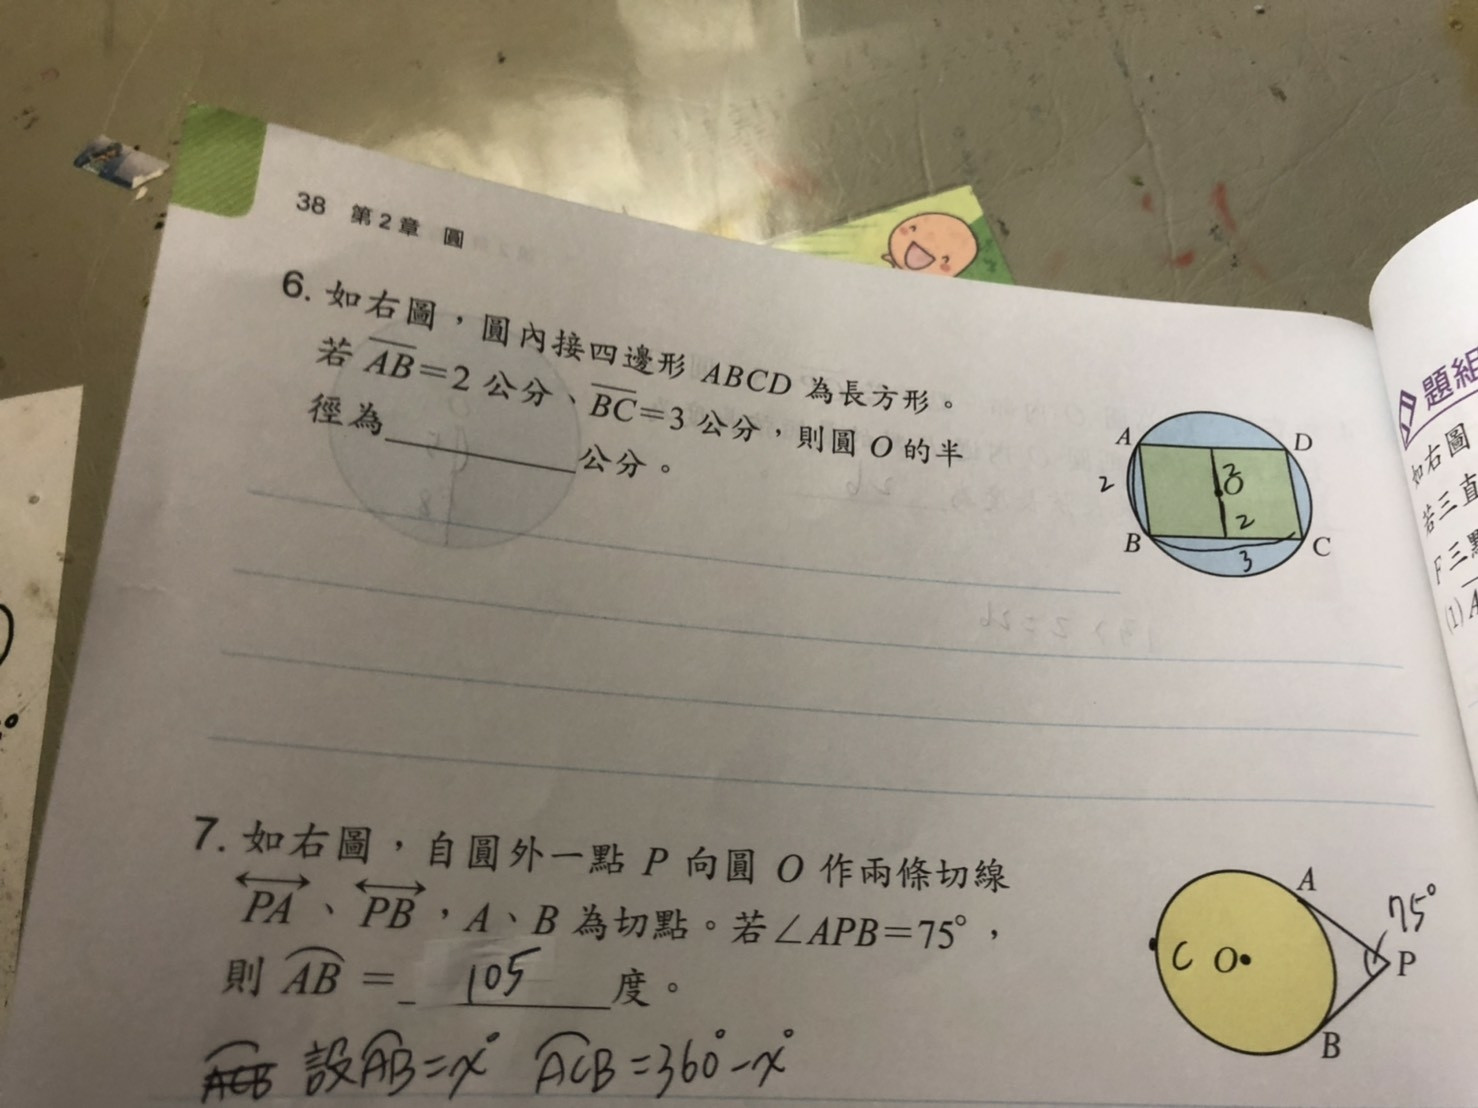 38 第2章 圓
6. 如右圖，圓內接四邊形 ABCD 為長方形。
若 AB=2 公分、BC=3 公分，則圓 O 的半
徑為 公分。
A
D
2
2
O
2
B
C
3
7. 如右圖，自圓外一點 P 向圓 O 作兩條切線
PA、PB，A、B 為切點。若∠APB=75°，
則 AB = 105 度。
設AB=x° ACB=360°-x°
A
75°
C
O
P
B
題組
如右圖
若三直
F三
(1)